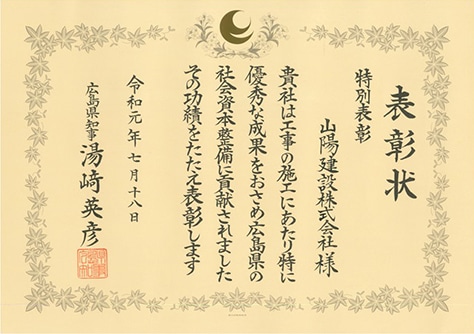 表彰状
特別表彰
山陽建設株式会社様
貴社は工事の施工にあたり特に
優秀な成果をおさめ広島県の
社会資本整備に貢献されました
その功績をたたえ表彰します
令和元年七月十八日
広島県知事 湯﨑英彦